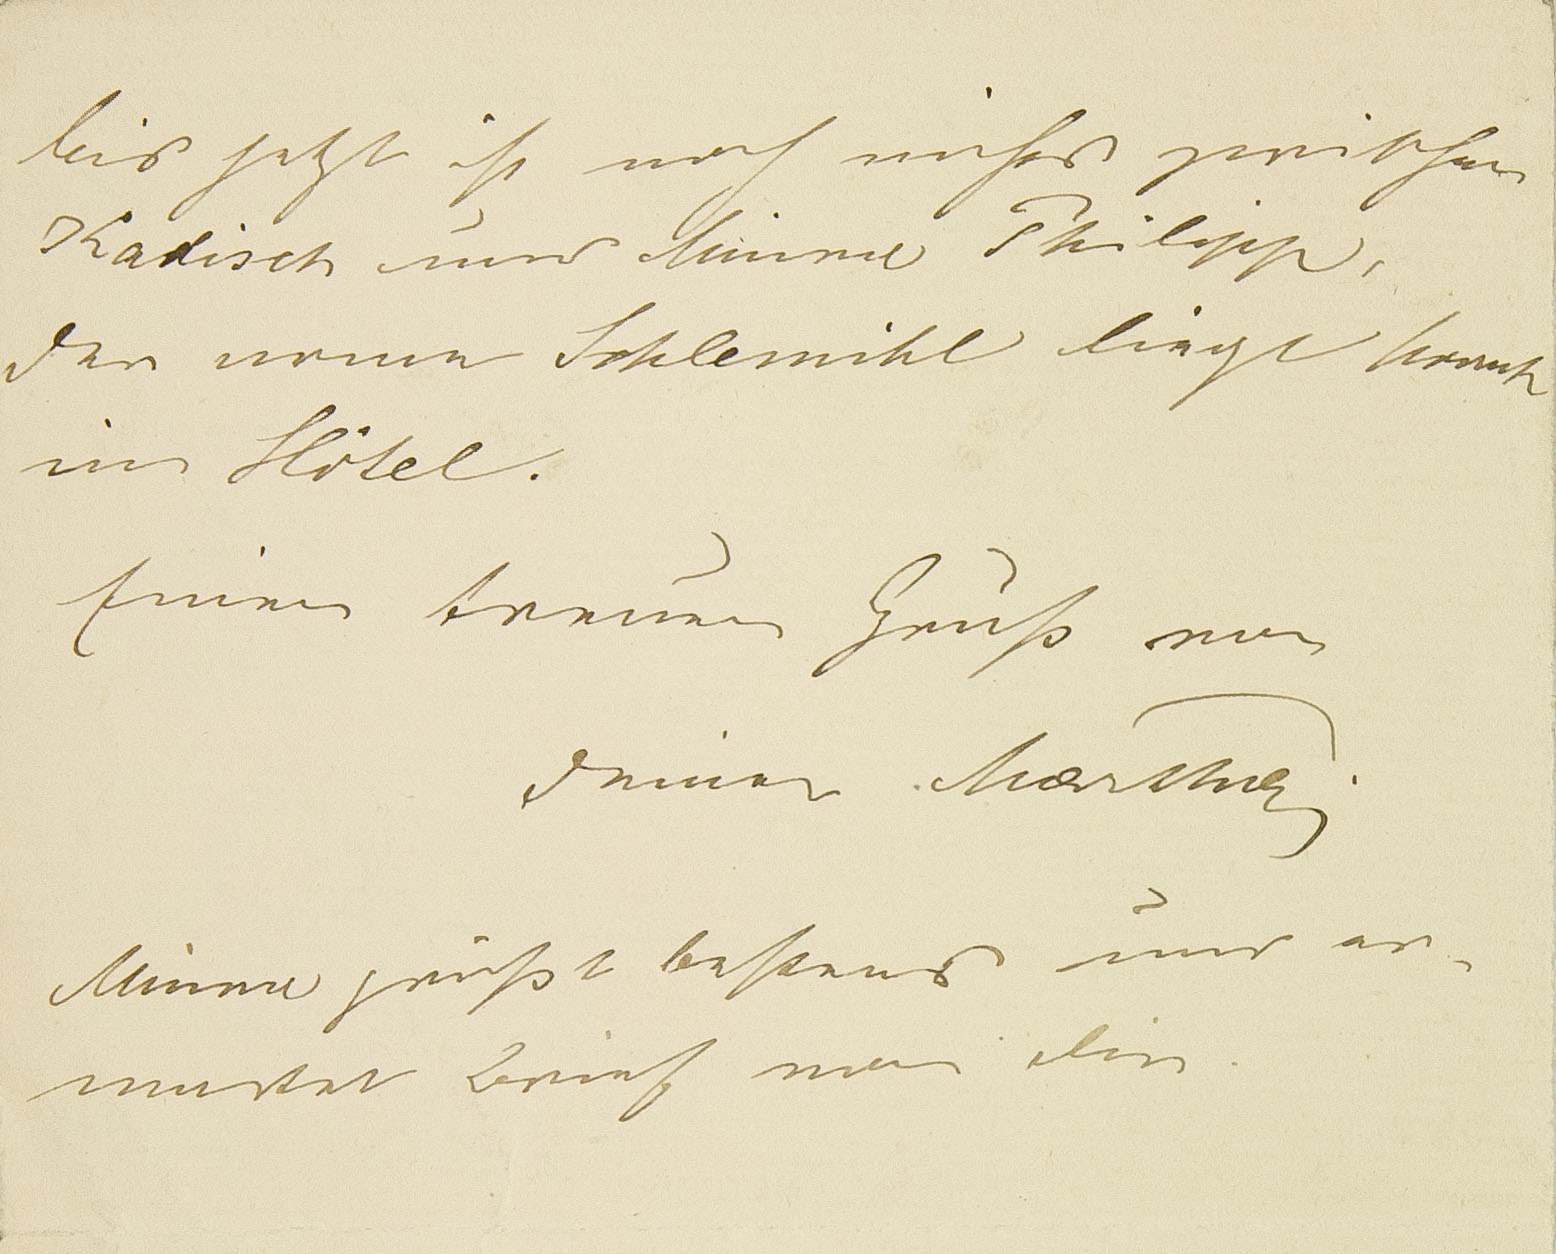 bis jetzt ist noch nichts zwischen
Kadisch und Minna Philipp,
der arme Schlemihl liegt krank
im Hôtel.
Einen treuen Gruß von
deiner Martha
Minna grüßt bestens und er-
wartet Brief von dir.